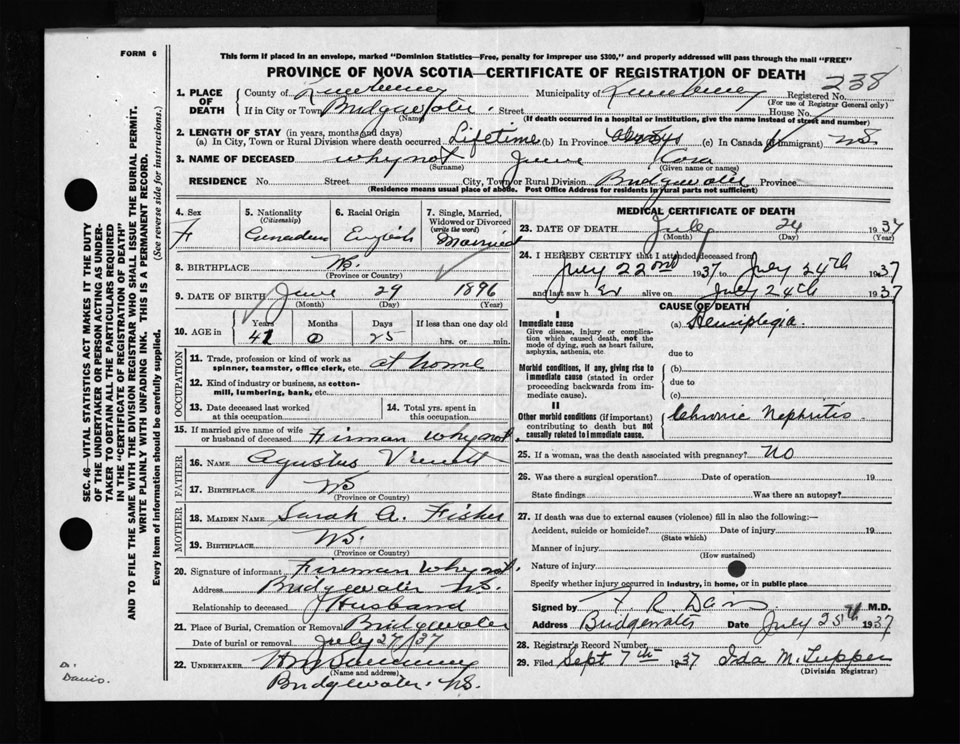 FORM 6
This form if placed in an envelope, marked "Dominion Statistics—Free, penalty for improper use $300," and properly addressed will pass through the mail "FREE"
PROVINCE OF NOVA SCOTIA—CERTIFICATE OF REGISTRATION OF DEATH
238
1. PLACE OF DEATH
County of Lunenburg Municipality of Lunenburg Registered No.
(For use of Registrar General only)
If in City or Town Bridgewater Street House No.
(Name)
(If death occurred in a hospital or institution, give the name instead of street and number)
2. LENGTH OF STAY (in years, months and days)
(a) In City, Town or Rural Division where death occurred Lifetime (b) In Province (c) In Canada (if immigrant) NS
3. NAME OF DECEASED Whynot Cora
(Surname) (Given name or names)
RESIDENCE No. Street City, Town or Rural Division Bridgewater Province
(Residence means usual place of abode. Post Office Address for residents in rural parts not sufficient)
4. Sex
F
5. Nationality
(Citizenship)
Canadian
6. Racial Origin
English
7. Single, Married, Widowed or Divorced
(write the word)
Married
8. BIRTHPLACE NS
(Province or Country)
9. DATE OF BIRTH June 29 1896
(Month) (Day) (Year)
10. AGE in
Years Months Days If less than one day old
41 0 25 hrs. or min.
OCCUPATION
11. Trade, profession or kind of work as
spinner, teamster, office clerk, etc. at home
12. Kind of industry or business, as cotton-
mill, lumbering, bank, etc.
13. Date deceased last worked
at this occupation
14. Total yrs. spent in
this occupation
15. If married give name of wife
or husband of deceased Firman Whynot
FATHER
16. NAME Agustus
17. BIRTHPLACE NS
(Province or Country)
MOTHER
18. MAIDEN NAME Sarah A. Fisher
19. BIRTHPLACE NS.
(Province or Country)
20. Signature of informant Fireman Whynot.
Address Bridgewater NS.
Relationship to deceased Husband
21. Place of Burial, Cremation or Removal Bridgewater
Date of burial or removal July 27/37
22. UNDERTAKER
(Name and address)
Bridgewater. NS.
MEDICAL CERTIFICATE OF DEATH
23. DATE OF DEATH July 24 1937
(Month) (Day) (Year)
24. I HEREBY CERTIFY that I attended deceased from
July 22nd 1937 to July 24th 1937
and last saw her alive on July 24th 1937
CAUSE OF DEATH
I
Immediate cause
Give disease, injury or complica-
tion which caused death, not the
mode of dying, such as heart failure,
asphyxia, asthenia, etc.
(a) Hemiplegia.
due to
Morbid conditions, if any, giving rise to
immediate cause (stated in order
proceeding backwards from im-
mediate cause).
(b)
due to
(c)
II
Other morbid conditions (if important)
contributing to death but not
causally related to immediate cause.
Chronic Nephritis
25. If a woman, was the death associated with pregnancy? NO
26. Was there a surgical operation? Date of operation 19
State findings Was there an autopsy?
27. If death was due to external causes (violence) fill in also the following:—
Accident, suicide or homicide? Date of injury 19
(State which)
Manner of injury
(How sustained)
Nature of injury
Specify whether injury occurred in industry, in home, or in public place
Signed by F. R. Davis M.D.
Address Bridgewater Date July 25th 1937
28. Registrar's Record Number
29. Filed Sept 7th 1937 Ida M. Tupper
(Division Registrar)
SEC. 46—VITAL STATISTICS ACT MAKES IT THE DUTY
OF THE UNDERTAKER OR PERSON ACTING AS UNDER-
TAKER TO OBTAIN ALL THE PARTICULARS REQUIRED
IN THE "CERTIFICATE OF REGISTRATION OF DEATH"
AND TO FILE THE SAME WITH THE DIVISION REGISTRAR WHO SHALL ISSUE THE BURIAL PERMIT.
WRITE PLAINLY WITH UNFADING INK. THIS IS A PERMANENT RECORD.
Every item of information should be carefully supplied. (See reverse side for instructions.)
Davis.